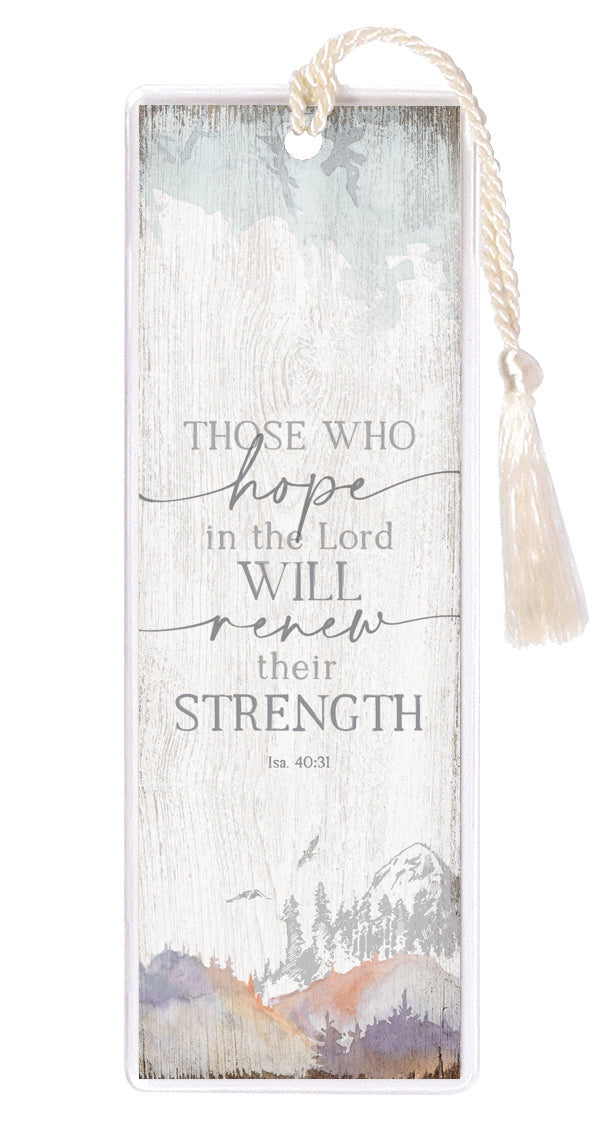 THOSE WHO
hope
in the Lord
WILL
renew
their
STRENGTH
Isa. 40:31